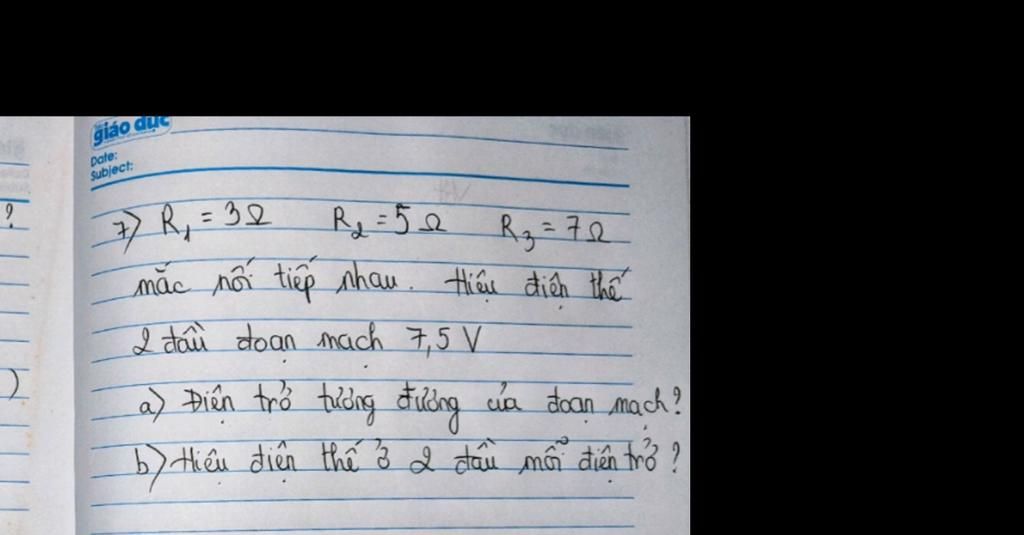 giáo dục
Date:
Subject:
?
7) R₁ = 3Ω R₂ = 5Ω R₃ = 7Ω
mắc nối tiếp nhau. Hiệu điện thế
2 đầu đoạn mạch 7,5 V
)
a) Điện trở tương đương của đoạn mạch?
b) Hiệu điện thế ở 2 đầu mỗi điện trở?